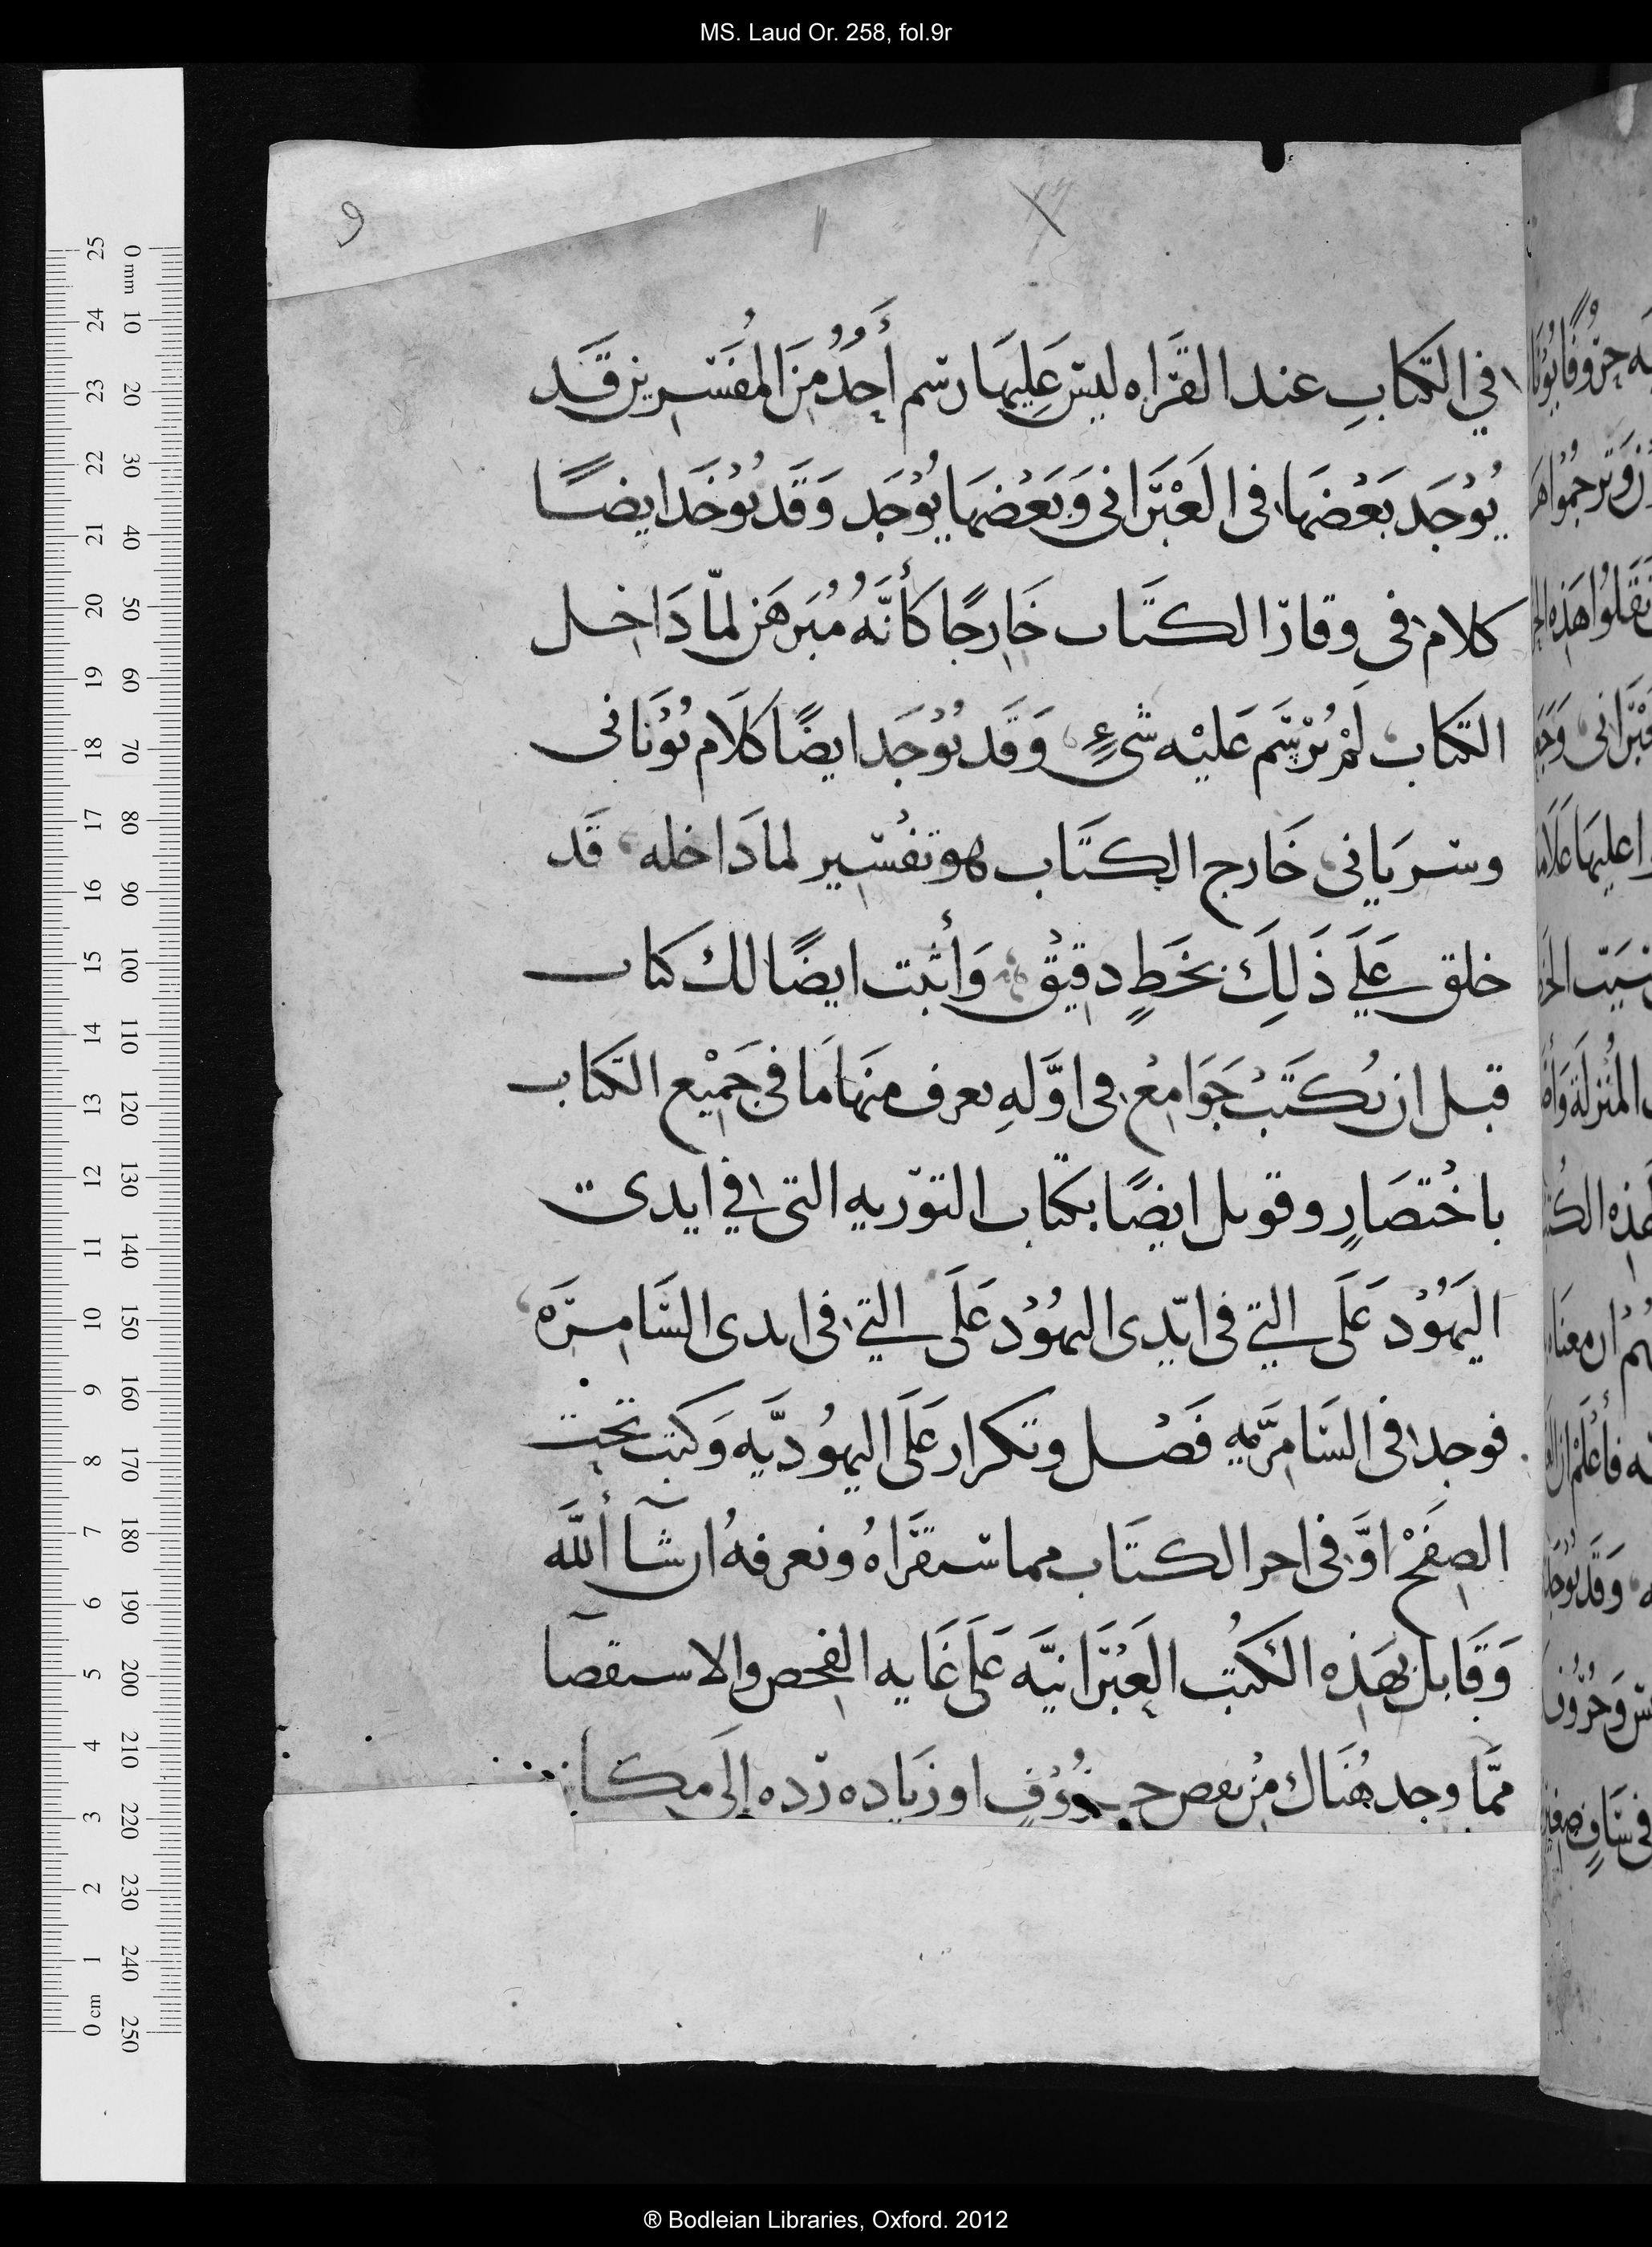 MS. Laud Or. 258, fol.9r
9
في الكتابِ عند القَرَاه ليس عَليهَا رسم أَحَدٌ مِنَ المُفَسِرين قَد
يُوْجَد بَعْضهَا في العَبْرَاني وَبَعْضهَا يُوْجَد وَقَد يُوْخَد ايضًا
كلام في وقارَ الكتَاب خَارِجًا كأنَّهُ مُبَرهَن لمّا دَاخل
الكتاب لَمْ يُرْسَم عَليْه شيءٍ وَقَد يُوْجَد ايضًا كلَام يُوْنَاني
وسريَاني خَارج الكتَاب هو تفْسير لما دَاخله قَد
خلق عَلَي ذَلِكَ بخَطٍ دقيْقٍ وَأثبت ايضًا لك كتاب
قبل ان يُكتَبْ جَوَامعْ في اوَّلهِ يعرف منهَا مَا في جَميْع الكتاب
باخْتصَارٍ وقوبل ايضًا بكتاب التوريه التي في ايدي
اليَهُوْد عَلَي التي في ايَدي اليهُوْد عَلَى التي في ايدي السَامرَه
فوجد في السَامرَّيه فَصْل وتكرار عَلَى اليهُوديَّه وَكتب تحت
الصفَحْ اوَ في اخر الكتَاب مما ستقرَاهُ وتعرفهُ ان شآ أللَّه
وَقَابل بهَذِه الكتُب العَبْرَانيَّه عَلَى غَايه الفحص والاستقصآ
ممَّا وجد هُنَاك مِنْ نقص حروُوْفٍ او زيَاده رَده إلَى مكان
® Bodleian Libraries, Oxford. 2012